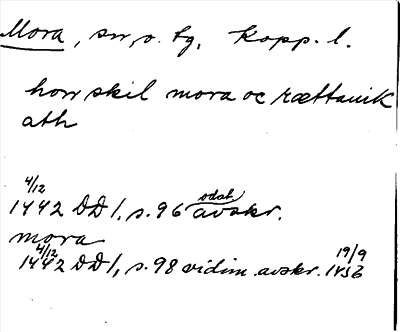 Mora, sn, o. tg, Kopp. l.
hon skil mora oc rættauik
ath
4/12
1442 DD 1. s. 96 odat. avskr.
mora
4/12 19/9
1442 DD 1, s. 98 vidim. avskr. 1456